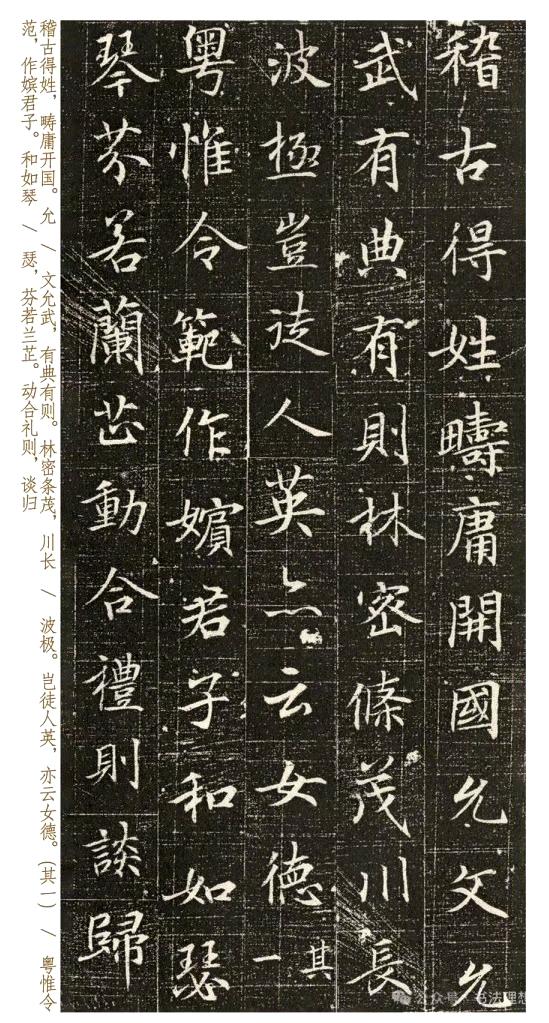 稽古得姓疇庸開國允文允
武有典有則林密條茂川長
波極豈徒人英亦云女德其一
粵惟令範作嬪君子和如瑟
琴芬若蘭芷動合禮則談歸
稽古得姓，畴庸开国。允 / 文允武，有典有则。林密条茂，川长 / 波极。岂徒人英，亦云女德。(其一) / 粤惟令
范，作嫔君子。和如琴 / 瑟，芬若兰芷。动合礼则，谈归
公众号 · 书法理想